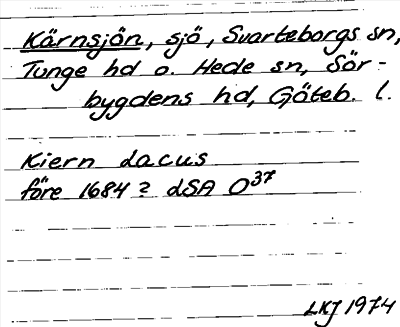 Kärnsjön, sjö, Svarteborgs sn,
Tunge hd o. Hede sn, Sör-
bygdens hd, Göteb. l.
Kiern lacus
före 1684? dSA O³⁷
LKJ 1974